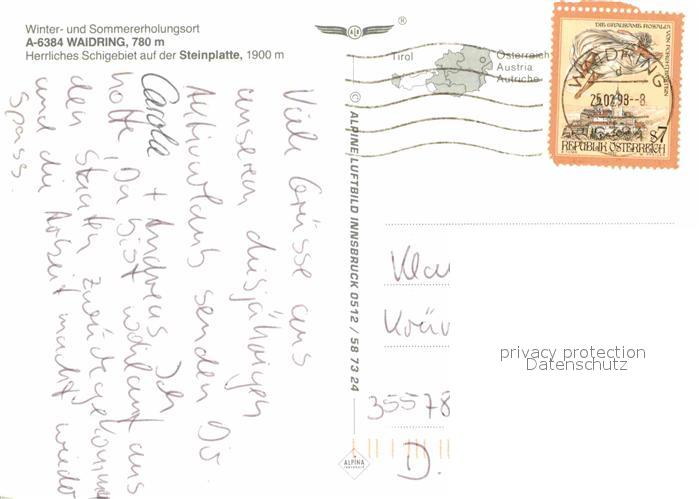 Winter- und Sommererholungsort
A-6384 WAIDRING, 780 m
Herrliches Schigebiet auf der Steinplatte, 1900 m
®
Tirol
Österreich
Austria
Autriche
DIE GRAUSAME ROSALIA VON FORCHTENSTEIN
WAIDRING
25.02.98--8
6384
s7
REPUBLIK ÖSTERREICH
© ALPINE LUFTBILD INNSBRUCK 0512 / 58 73 24
Viele Grüsse aus
unserem diesjährigen
Aktivurlaub senden Dir
Carola + Andreas. Ich
hoffe Du bist wohlauf aus
den Staaten zurückgekommen
und die Arbeit macht wieder
Spass.
35578
D.
ALPINA
privacy protection
Datenschutz